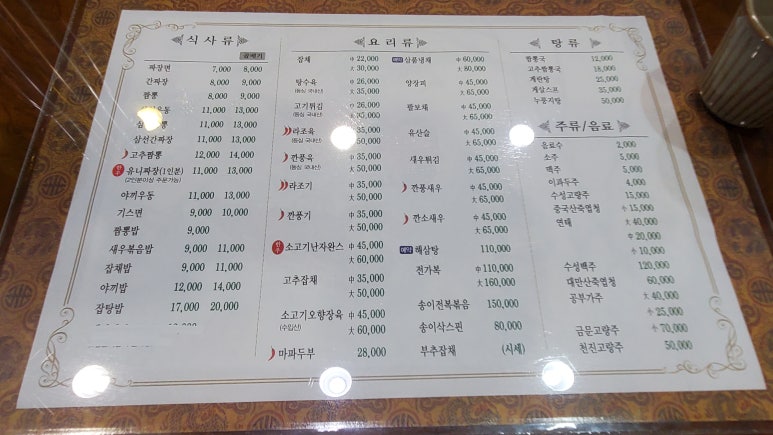 식사류
곱빼기
짜장면 7,000 8,000
간짜장 8,000 9,000
짬뽕 8,000 9,000
우동 11,000 13,000
11,000 13,000
삼선간짜장 11,000 13,000
고추짬뽕 12,000 14,000
유니짜장(1인분) 11,000 13,000
(2인분이상 주문가능)
야끼우동 11,000 13,000
기스면 9,000 10,000
짬뽕밥 9,000
새우볶음밥 9,000 11,000
잡채밥 9,000 11,000
야끼밥 12,000 14,000
잡탕밥 17,000 20,000
요리류
잡채 中 22,000
大 30,000
탕수육 中 26,000
(등심 국내산) 大 35,000
고기튀김 中 26,000
(등심 국내산) 大 35,000
라조육 中 35,000
(등심 국내산) 大 50,000
깐풍육 中 35,000
(등심 국내산) 大 50,000
라조기 中 35,000
大 50,000
깐풍기 中 35,000
大 50,000
소고기난자완스 中 45,000
大 60,000
고추잡채 中 35,000
大 50,000
소고기오향장육 中 45,000
(수입산) 大 60,000
마파두부 28,000
예약 삼품냉채 中 60,000
大 80,000
양장피 中 45,000
大 65,000
팔보채 中 45,000
大 65,000
유산슬 中 45,000
大 65,000
새우튀김 中 45,000
大 65,000
깐풍새우 中 45,000
大 65,000
깐소새우 中 45,000
大 65,000
예약 해삼탕 110,000
전가복 中 110,000
大 160,000
송이전복볶음 150,000
송이삭스핀 80,000
부추잡채 (시세)
탕류
짬뽕국 12,000
고추짬뽕국 18,000
계란탕 25,000
게살스프 35,000
누룽지탕 50,000
주류/음료
음료수 2,000
소주 5,000
맥주 5,000
이과두주 4,000
수성고량주 5,000
중국산죽엽청 小 15,000
연태 大 40,000
中 20,000
小 10,000
수성백주 120,000
대만산죽엽청 60,000
공부가주 大 40,000
小 25,000
금문고량주 小 70,000
천진고량주 50,000